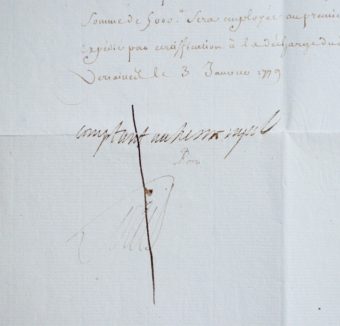 Somme de Sera employée au premier
expédié par certiffication à la décharge du
le 3. Janvier 1779
comptant au tresor royal
Bon